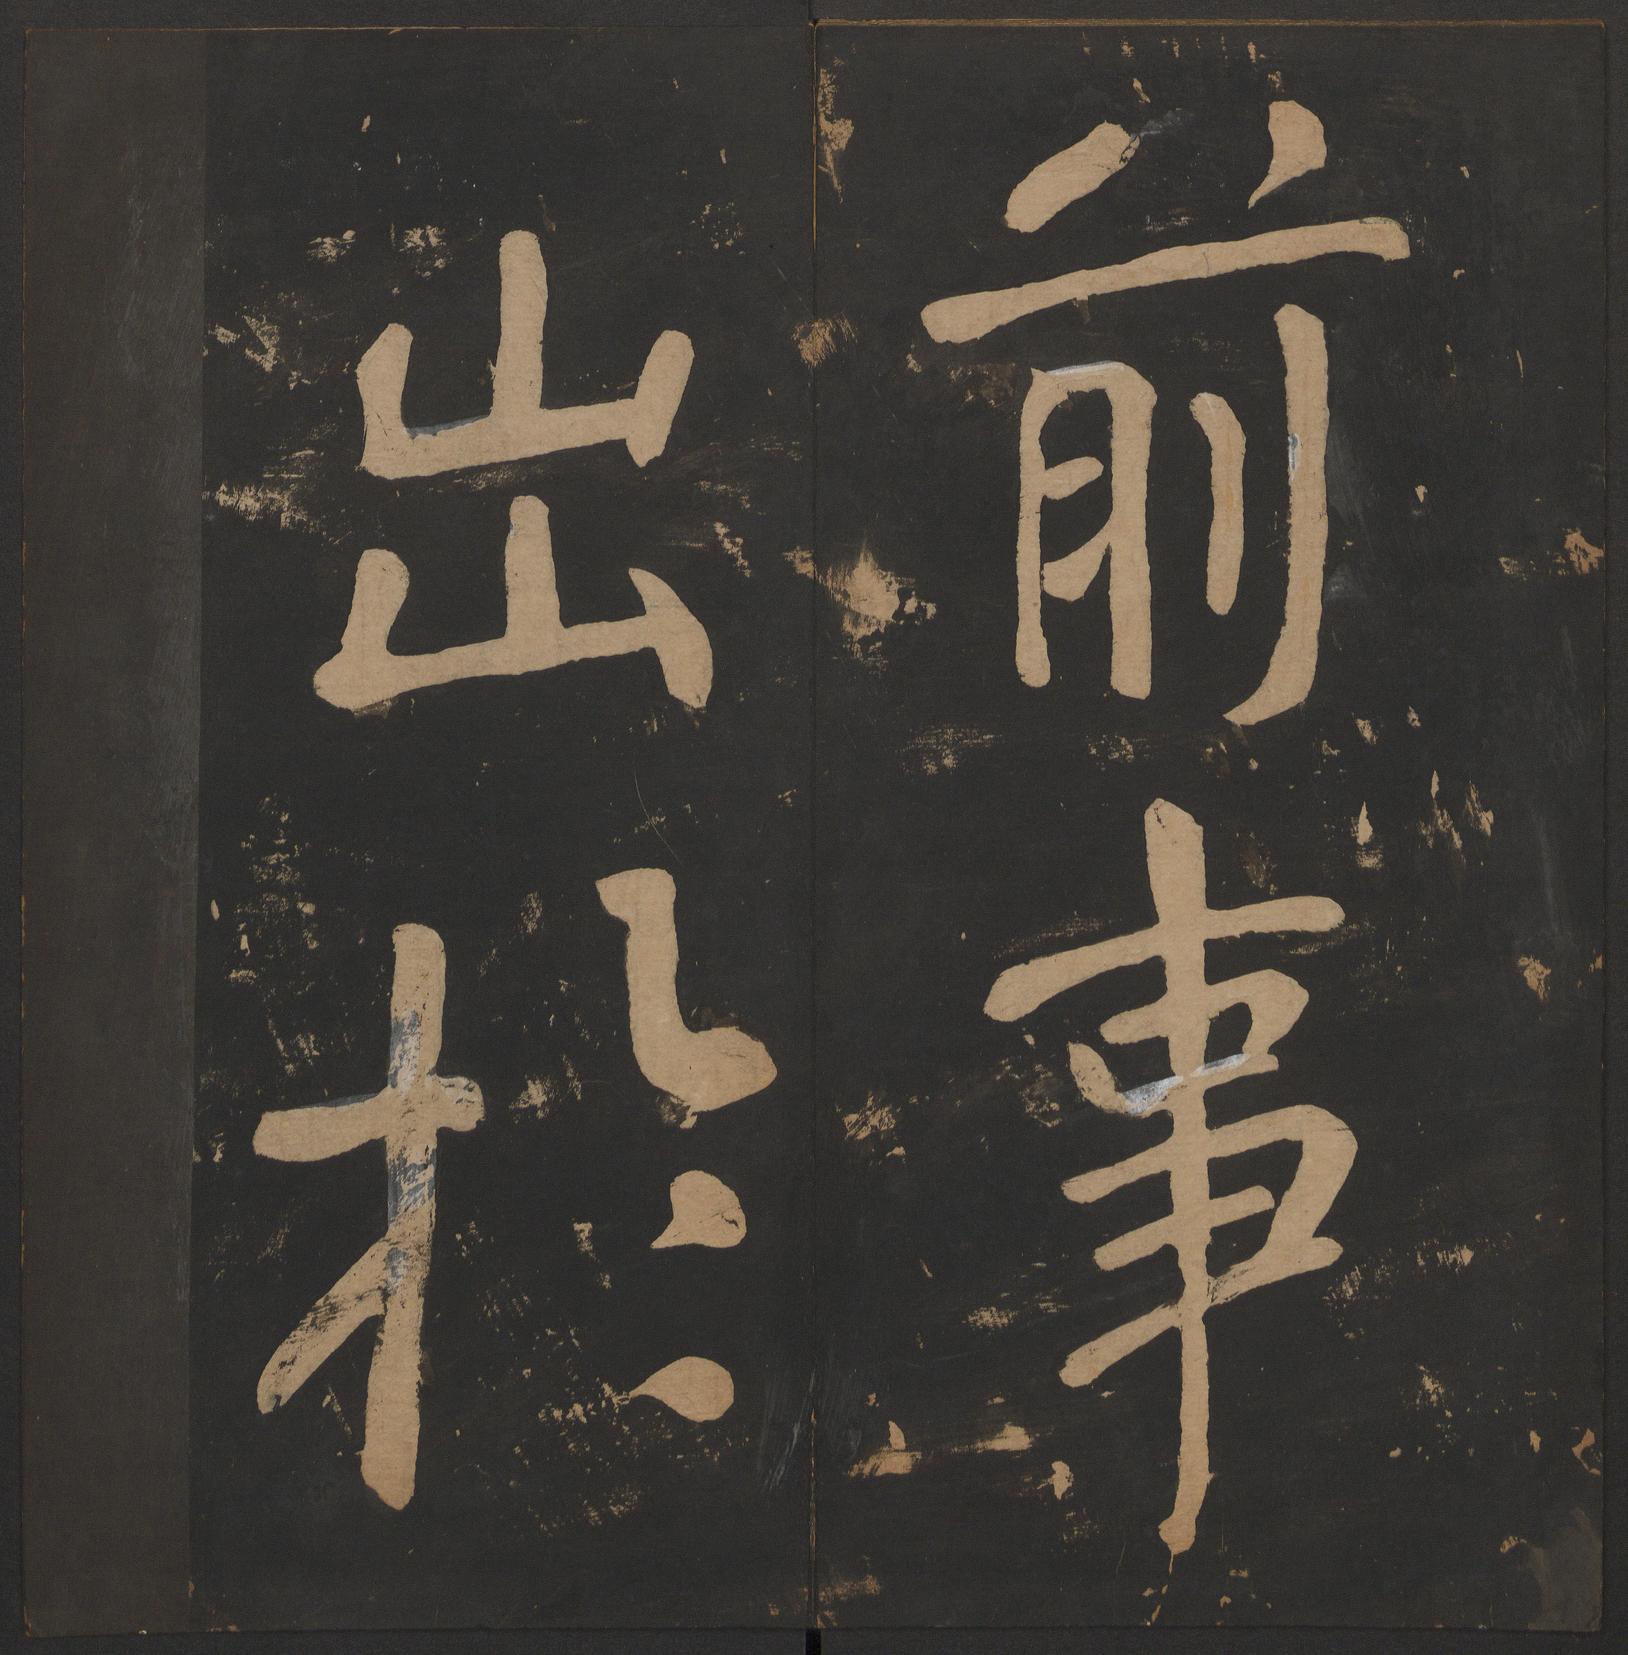 前事
出於